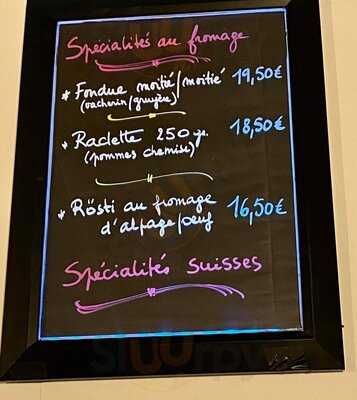 Spécialités au fromage
* Fondue moitié/moitié 19,50€
(vacherin/gruyère)
* Raclette 250 gr. 18,50€
(pommes chemise)
* Rösti au fromage
d'alpage/oeuf 16,50€
Spécialités suisses